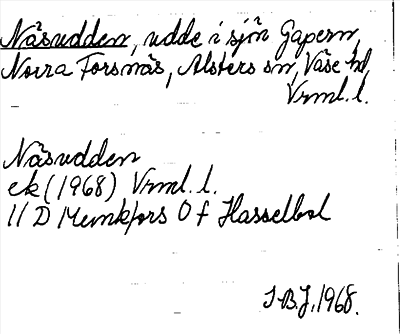 Näsudden, udde i sjön Gapern,
Norra Forsnäs, Alsters sn, Väse hd,
Vrml. l.
Näsudden
ek (1968) Vrml. l.
11 D Munkfors 0 f Hasselbol
I. B. J. 1968.